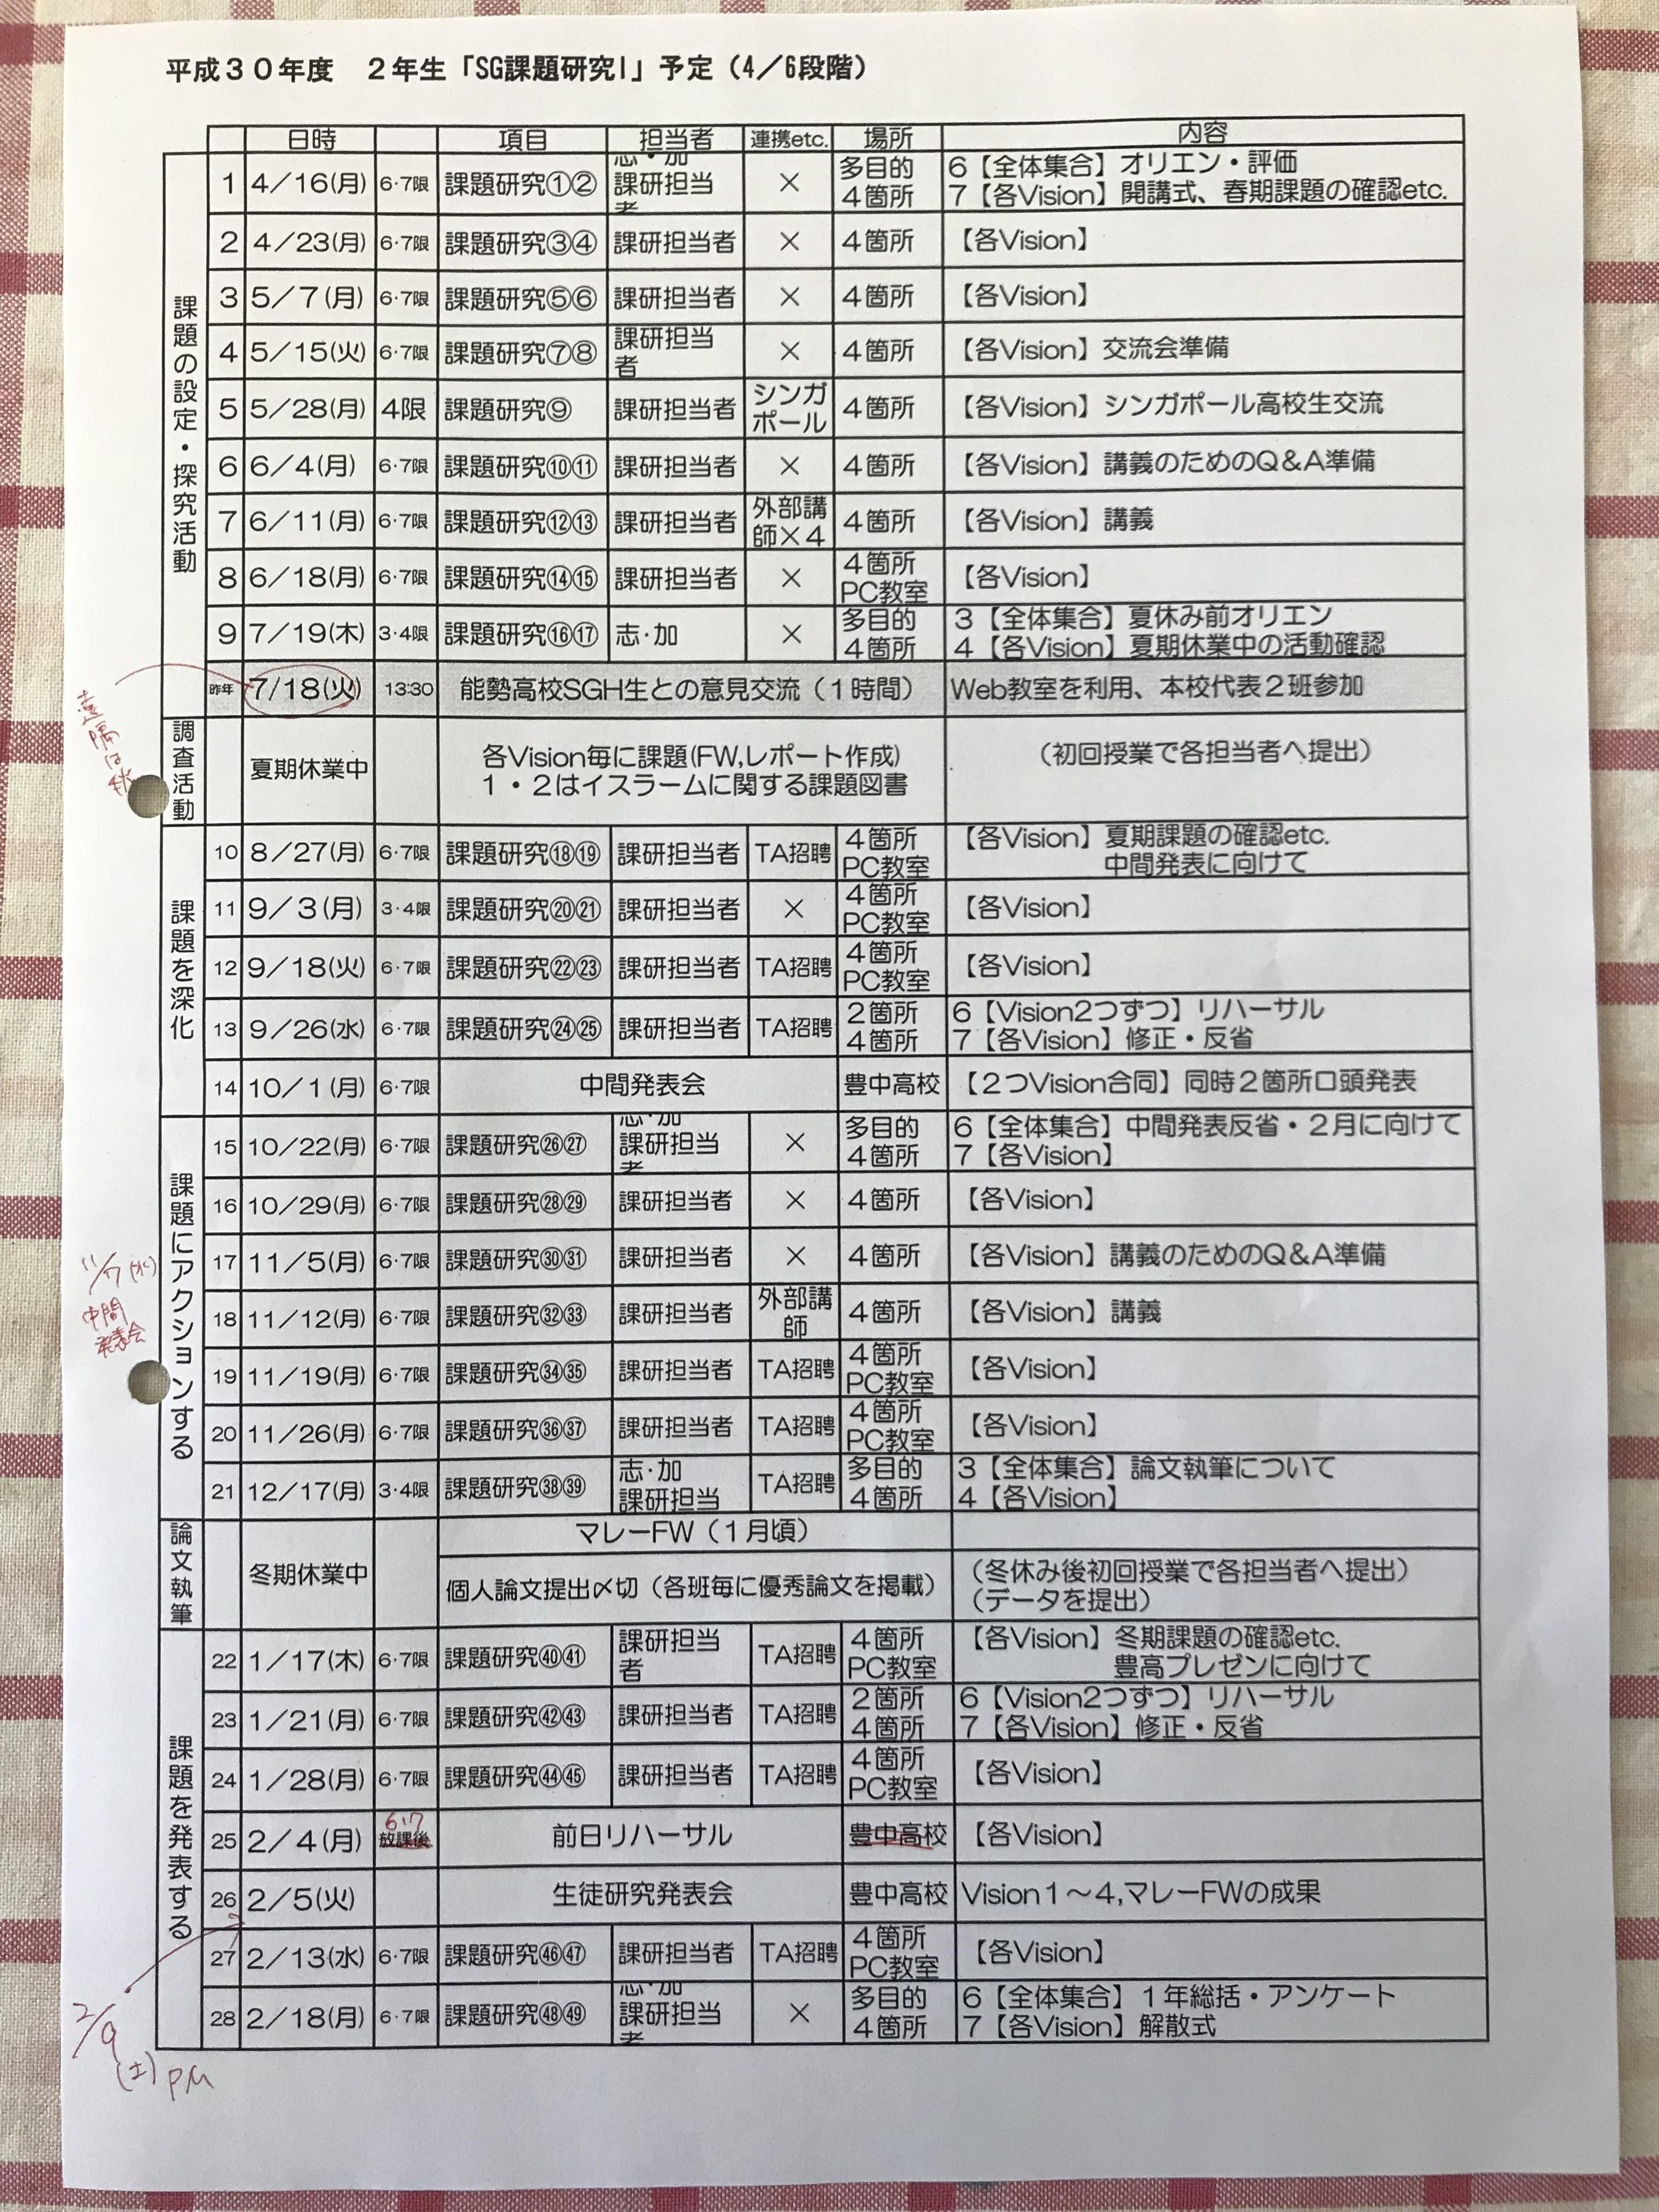 平成30年度　2年生「SG課題研究Ⅰ」予定（4／6段階）
日時 項目 担当者 連携etc. 場所 内容
課題の設定・探究活動
1 4／16(月) 6・7限 課題研究①② 志・加 課研担当者 × 多目的 4箇所 6【全体集合】オリエン・評価
7【各Vision】開講式、春期課題の確認etc.
2 4／23(月) 6・7限 課題研究③④ 課研担当者 × 4箇所 【各Vision】
3 5／7(月) 6・7限 課題研究⑤⑥ 課研担当者 × 4箇所 【各Vision】
4 5／15(火) 6・7限 課題研究⑦⑧ 課研担当者 × 4箇所 【各Vision】交流会準備
5 5／28(月) 4限 課題研究⑨ 課研担当者 シンガポール 4箇所 【各Vision】シンガポール高校生交流
6 6／4(月) 6・7限 課題研究⑩⑪ 課研担当者 × 4箇所 【各Vision】講義のためのQ＆A準備
7 6／11(月) 6・7限 課題研究⑫⑬ 課研担当者 外部講師×4 4箇所 【各Vision】講義
8 6／18(月) 6・7限 課題研究⑭⑮ 課研担当者 × 4箇所 PC教室 【各Vision】
9 7／19(木) 3・4限 課題研究⑯⑰ 志・加 × 多目的 4箇所 3【全体集合】夏休み前オリエン
4【各Vision】夏期休業中の活動確認
昨年 7/18(火) 13:30 能勢高校SGH生との意見交流（1時間） Web教室を利用、本校代表2班参加
調査活動
夏期休業中 各Vision毎に課題(FW,レポート作成) （初回授業で各担当者へ提出）
1・2はイスラームに関する課題図書
課題を深化
10 8／27(月) 6・7限 課題研究⑱⑲ 課研担当者 TA招聘 4箇所 PC教室 【各Vision】夏期課題の確認etc.
中間発表に向けて
11 9／3(月) 3・4限 課題研究⑳㉑ 課研担当者 × 4箇所 PC教室 【各Vision】
12 9／18(火) 6・7限 課題研究㉒㉓ 課研担当者 TA招聘 4箇所 PC教室 【各Vision】
13 9／26(水) 6・7限 課題研究㉔㉕ 課研担当者 TA招聘 2箇所 4箇所 6【Vision2つずつ】リハーサル
7【各Vision】修正・反省
14 10／1(月) 6・7限 中間発表会 豊中高校 【2つVision合同】同時2箇所口頭発表
課題にアクションする
15 10／22(月) 6・7限 課題研究㉖㉗ 志・加 課研担当者 × 多目的 4箇所 6【全体集合】中間発表反省・2月に向けて
7【各Vision】
16 10／29(月) 6・7限 課題研究㉘㉙ 課研担当者 × 4箇所 【各Vision】
17 11／5(月) 6・7限 課題研究㉚㉛ 課研担当者 × 4箇所 【各Vision】講義のためのQ＆A準備
11/7(水)
中間
発表会
18 11／12(月) 6・7限 課題研究㉜㉝ 課研担当者 外部講師 4箇所 【各Vision】講義
19 11／19(月) 6・7限 課題研究㉞㉟ 課研担当者 TA招聘 4箇所 PC教室 【各Vision】
20 11／26(月) 6・7限 課題研究㊱㊲ 課研担当者 TA招聘 4箇所 PC教室 【各Vision】
21 12／17(月) 3・4限 課題研究㊳㊴ 志・加 課研担当 TA招聘 多目的 4箇所 3【全体集合】論文執筆について
4【各Vision】
論文執筆
冬期休業中 マレーFW（1月頃）
個人論文提出〆切（各班毎に優秀論文を掲載） （冬休み後初回授業で各担当者へ提出）
（データを提出）
課題を発表する
22 1／17(木) 6・7限 課題研究㊵㊶ 課研担当者 TA招聘 4箇所 PC教室 【各Vision】冬期課題の確認etc.
豊高プレゼンに向けて
23 1／21(月) 6・7限 課題研究㊷㊸ 課研担当者 TA招聘 2箇所 4箇所 6【Vision2つずつ】リハーサル
7【各Vision】修正・反省
24 1／28(月) 6・7限 課題研究㊹㊺ 課研担当者 TA招聘 4箇所 PC教室 【各Vision】
6・7
25 2／4(月) 放課後 前日リハーサル 豊中高校 【各Vision】
26 2／5(火) 生徒研究発表会 豊中高校 Vision1～4,マレーFWの成果
27 2／13(水) 6・7限 課題研究㊻㊼ 課研担当者 TA招聘 4箇所 PC教室 【各Vision】
28 2／18(月) 6・7限 課題研究㊽㊾ 志・加 課研担当者 × 多目的 4箇所 6【全体集合】1年総括・アンケート
7【各Vision】解散式
2/9
(土) PM